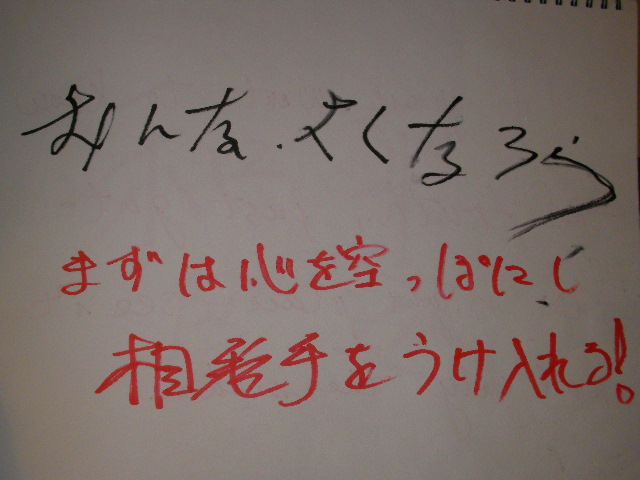 みんな.よくなろう
まずは心を空っぽにし
相手をうけ入れる!